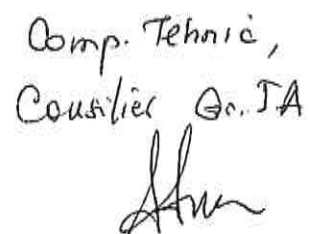 Comp. Tehnic,
Consilier Gr. IA